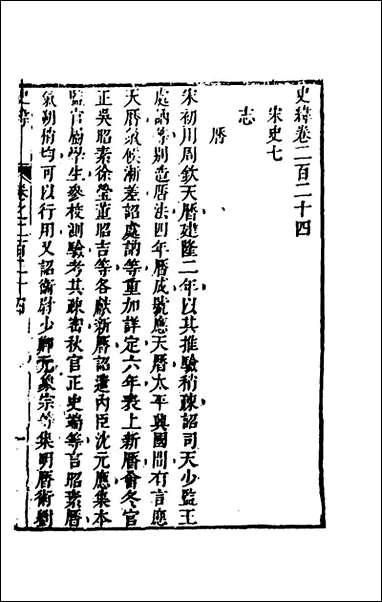 史緯卷二百二十四
宋史七
志
曆
宋初用周欽天曆建隆二年以其推驗稍疎詔司天少監王
處訥等別造曆法四年曆成號應天曆太平興國間有言應
天曆氣候漸差詔處訥等重加詳定六年表上新曆會冬官
正吳昭素徐瑩董昭吉等各獻新曆詔遣內臣沈元應集本
監官屬學生參校測驗考其疎密秋官正史端等言昭素曆
氣朔稍均可以行用又詔衛尉少卿元象宗等集明曆術劉
史緯
卷之二百二十四
一